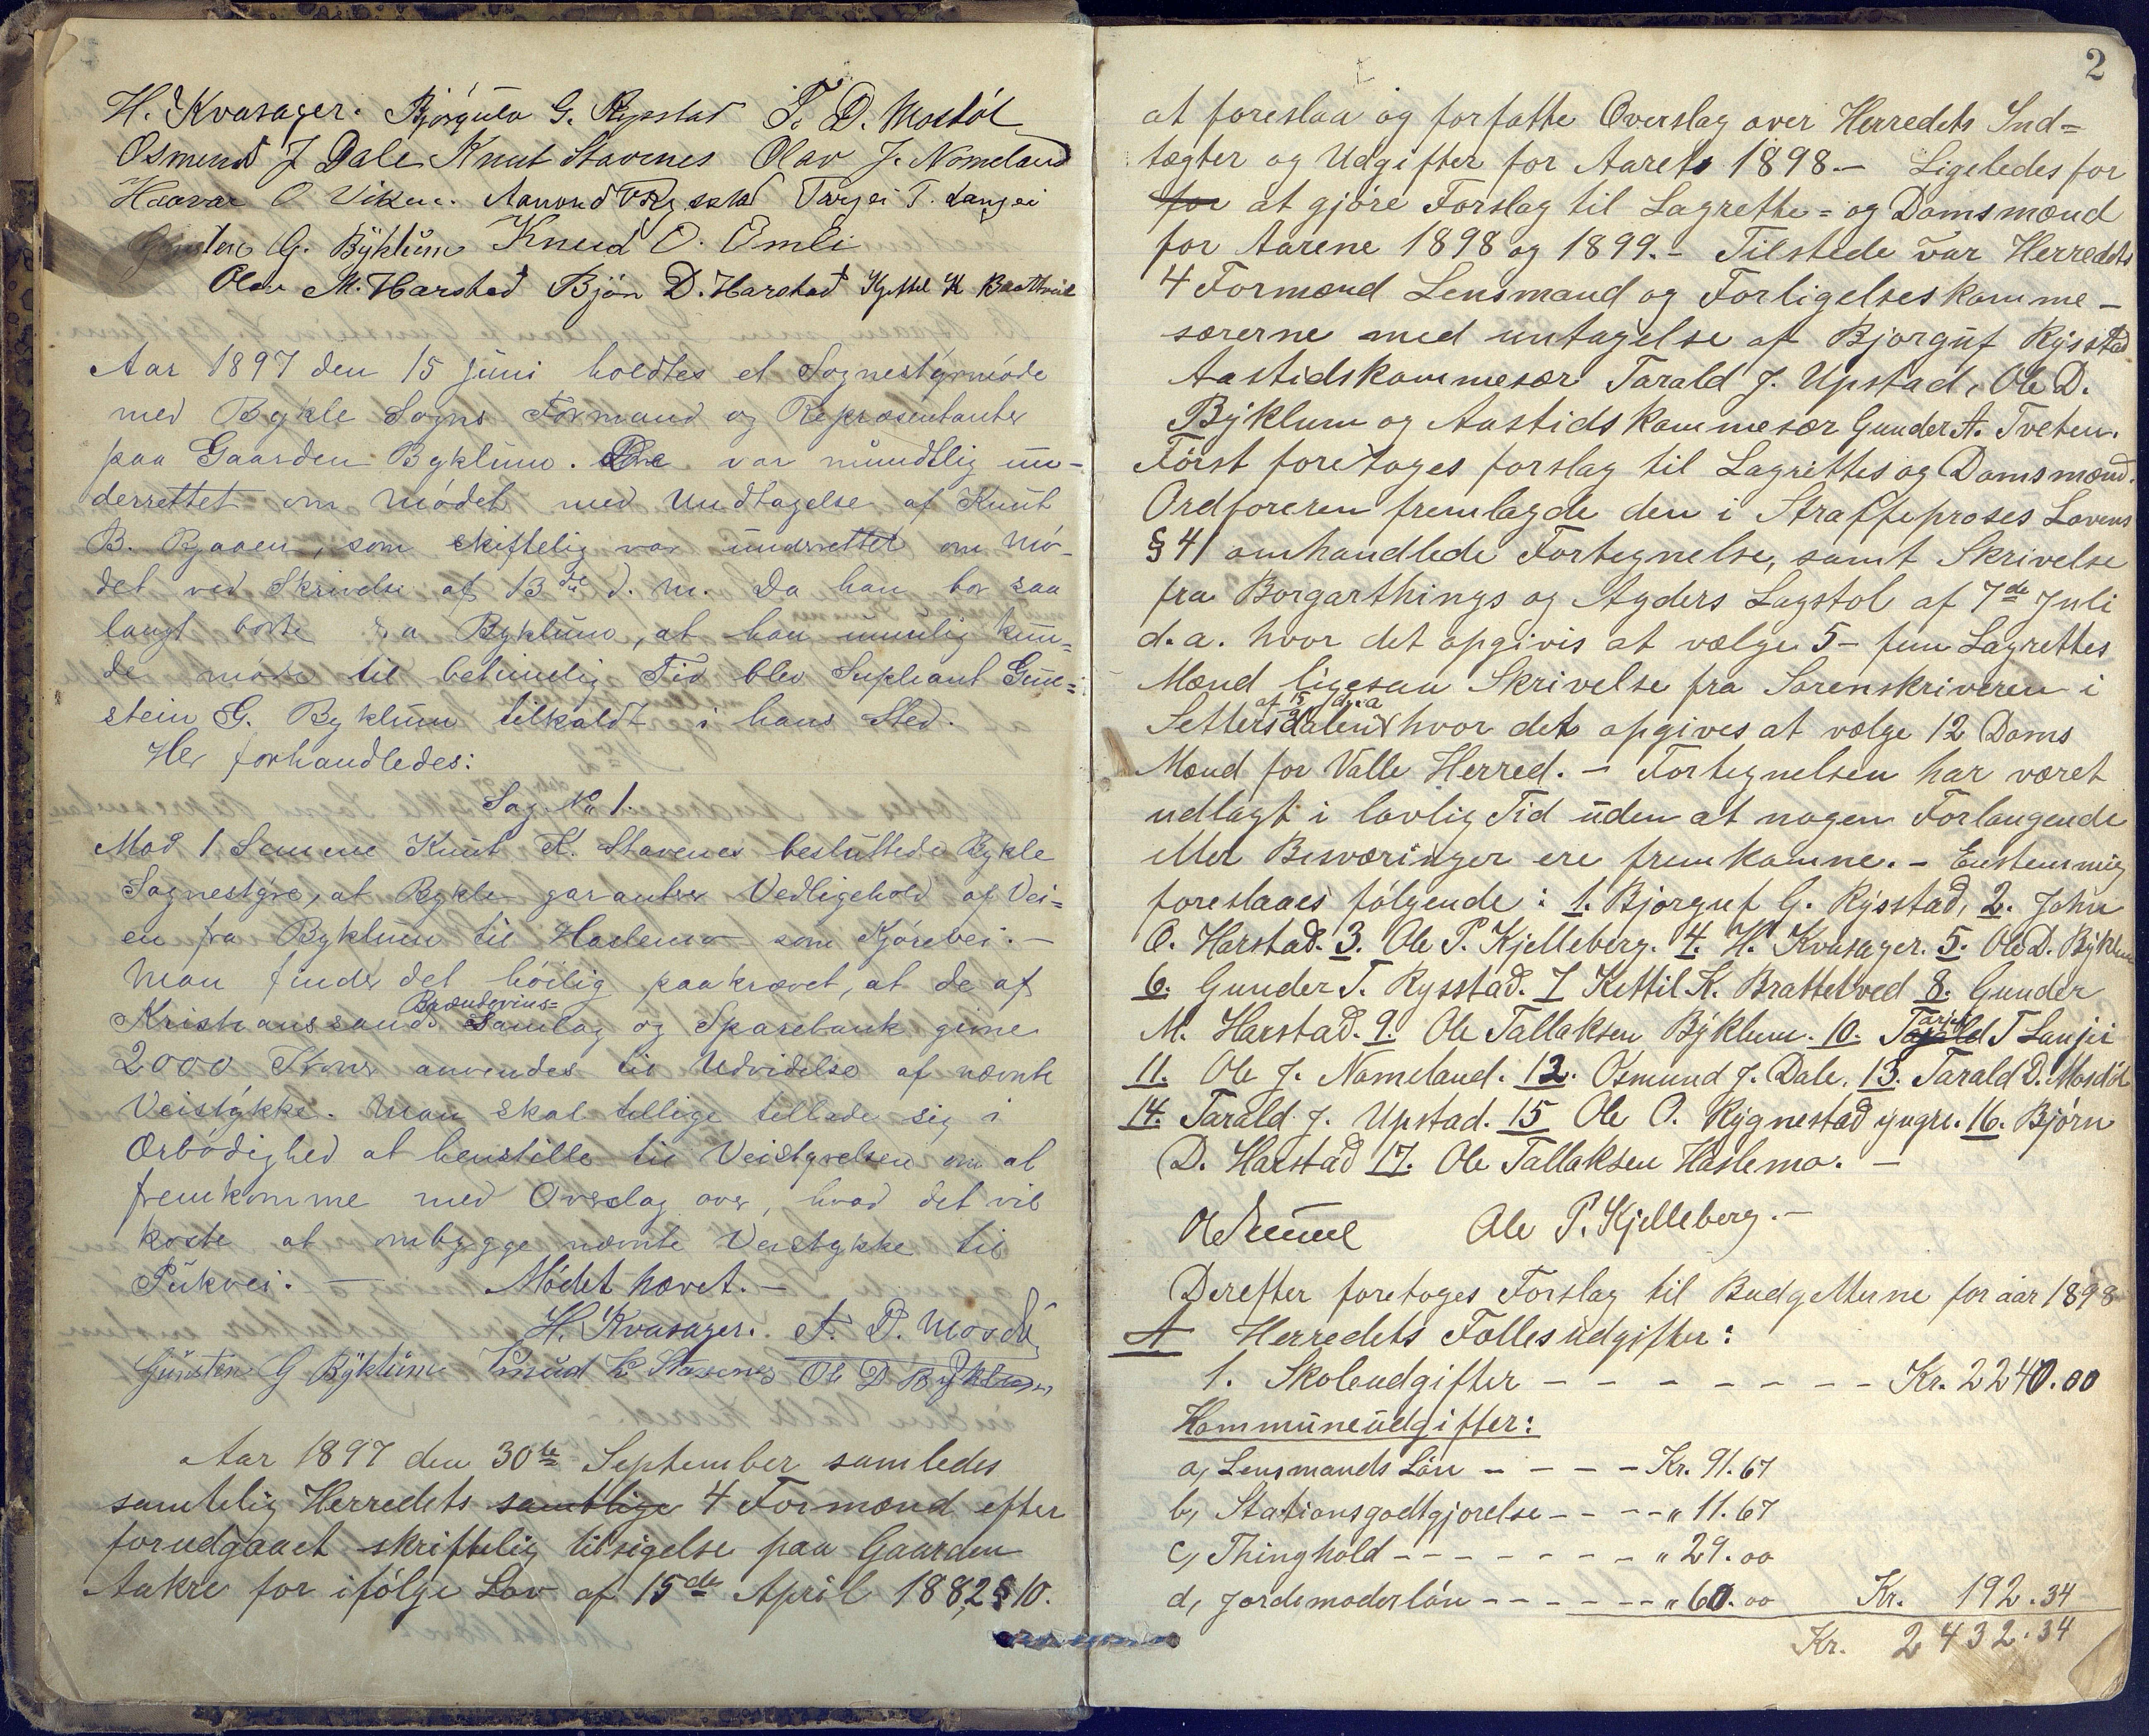 H. Kvasager. Bjørgulv G. Rysstad T. D. Mosdøl
Osmund J Dale Knut Stavenes Olav J. Nomeland
Haavar O Viken. Aanond Rysstad Targei T. Langei
Gunsten G. Byklum Knud O. Emli
Olav M. Harstad Bjøn D. Harstad Kjettel K Brattveid
Aar 1897 den 15 juni holdtes et Sognestyrmøde
med Bykle Sogns Formænd og Repræsentanter
paa Gaarden Byklum. De var mundtlig un-
derrettet om Mødet med Undtagelse af Knut
B. Bjaaen, som skiftelig var underrettet om Mø-
det ved Skrivelse af 13de d. m. Da han bor saa
langt borte fra Byklum, at han umulig kun-
de møde til betimelig Tid blev Supleant Gun-
stein G. Byklum tilkaldt i hans Sted.
Her forhandledes:
Sag No 1.
Mod 1 Stemme Knut K. Stavenes besluttede Bykle
Sognestyre, at Bykle garanter Vedligehold af Vei-
en fra Byklum til Haslemo som Kjørevei. —
Man finder det høilig paakrævet, at de af
Kristianssands Brændevins= Samlag og Sparebank givne
2000 Kroner anvendes til Udvidelse af nævnte
Veistykke. Man skal tillige tillade sig i
Ærbødighed at henstille til Veistyrelsen om at
fremkomme med Overslag over, hvad det vil
koste at ombygge nævnte Veistykke til
Pukvei. — Mødet hævet. —
H. Kvasager. T. D. Mosdøl
Gunsten G Byklum Knud K Stavenes Ole D Byklum
Aar 1897 den 30te September samledes
samtelig Herredets samtlige 4 Formænd efter
forudgaaet skriftelig tilsigelse paa Gaarden
Aakre for ifølge Lov af 15de April 1882 § 10.
2
at foreslaa og forfatte Overslag over Herredets Ind=
tægter og Udgifter for Aarets 1898. — Ligeledes for
for at gjøre Forslag til Lagrette= og Domsmænd
for Aarene 1898 og 1899. — Tilstede var Herredets
4 Formænd Lensmand og Forligelseskomme-
særerne med untagelse af Bjorguf Rysstad
Aastidskommesær Tarald J. Upstad, Ole D.
Byklum og Aastidskommesær Gunder A. Tveten.
Først foretoges forslag til Lagrettes og Domsmænd.
Ordføreren fremlagde den i Straffeproses Lovens
§ 41 omhandlede Fortegnelse, samt Skrivelse
fra Borgarthings og Agders Lagstol af 7de Juli
d. a. hvor det opgivis at vælge 5 - fem Lagrettes
Mænd ligesaa Skrivelse fra Sorenskriveren i
Settersdalen af 15/9 d. a. hvor det opgives at vælge 12 Doms
Mænd for Valle Herred. — Fortegnelsen har været
udlagt i lovlig Tid uden at nogen Forlangende
eller Besværinger ere fremkomne. — Enstemmig
foreslaaes følgende: 1. Bjorguf G. Rysstad, 2. John
O. Harstad. 3. Ole P. Kjelleberg. 4. H. Kvasager. 5. Ole D. Byklum
6. Gunder T. Rysstad. 7 Kettil K. Brattelved 8. Gunder
M. Harstad. 9. Ole Tallaksen Byklum. 10. Tarjei T Lanjei
11. Ole J. Nomeland. 12. Osmund J. Dale. 13. Tarald D. Mosdøl
14. Tarald J. Upstad. 15 Ole O. Rygnestad yngre. 16. Bjørn
D. Harstad 17. Ole Tallaksen Haslemo. —
Ole P. Kjelleberg. —
Derefter foretoges Forslag til Budgetterne for aar 1898
A Herredets Fællesudgifter:
1. Skoleudgifter - - - - - - - - Kr. 2240.00
Kommuneudgifter:
a, Lensmands Løn - - - - Kr. 91.67
b, Stationsgodtgjorelse - - - - " 11.67
c, Thinghold - - - - - - - " 29.00
d, Jordemoderløn - - - - - - " 60.00 Kr. 192.34
Kr. 2432.34